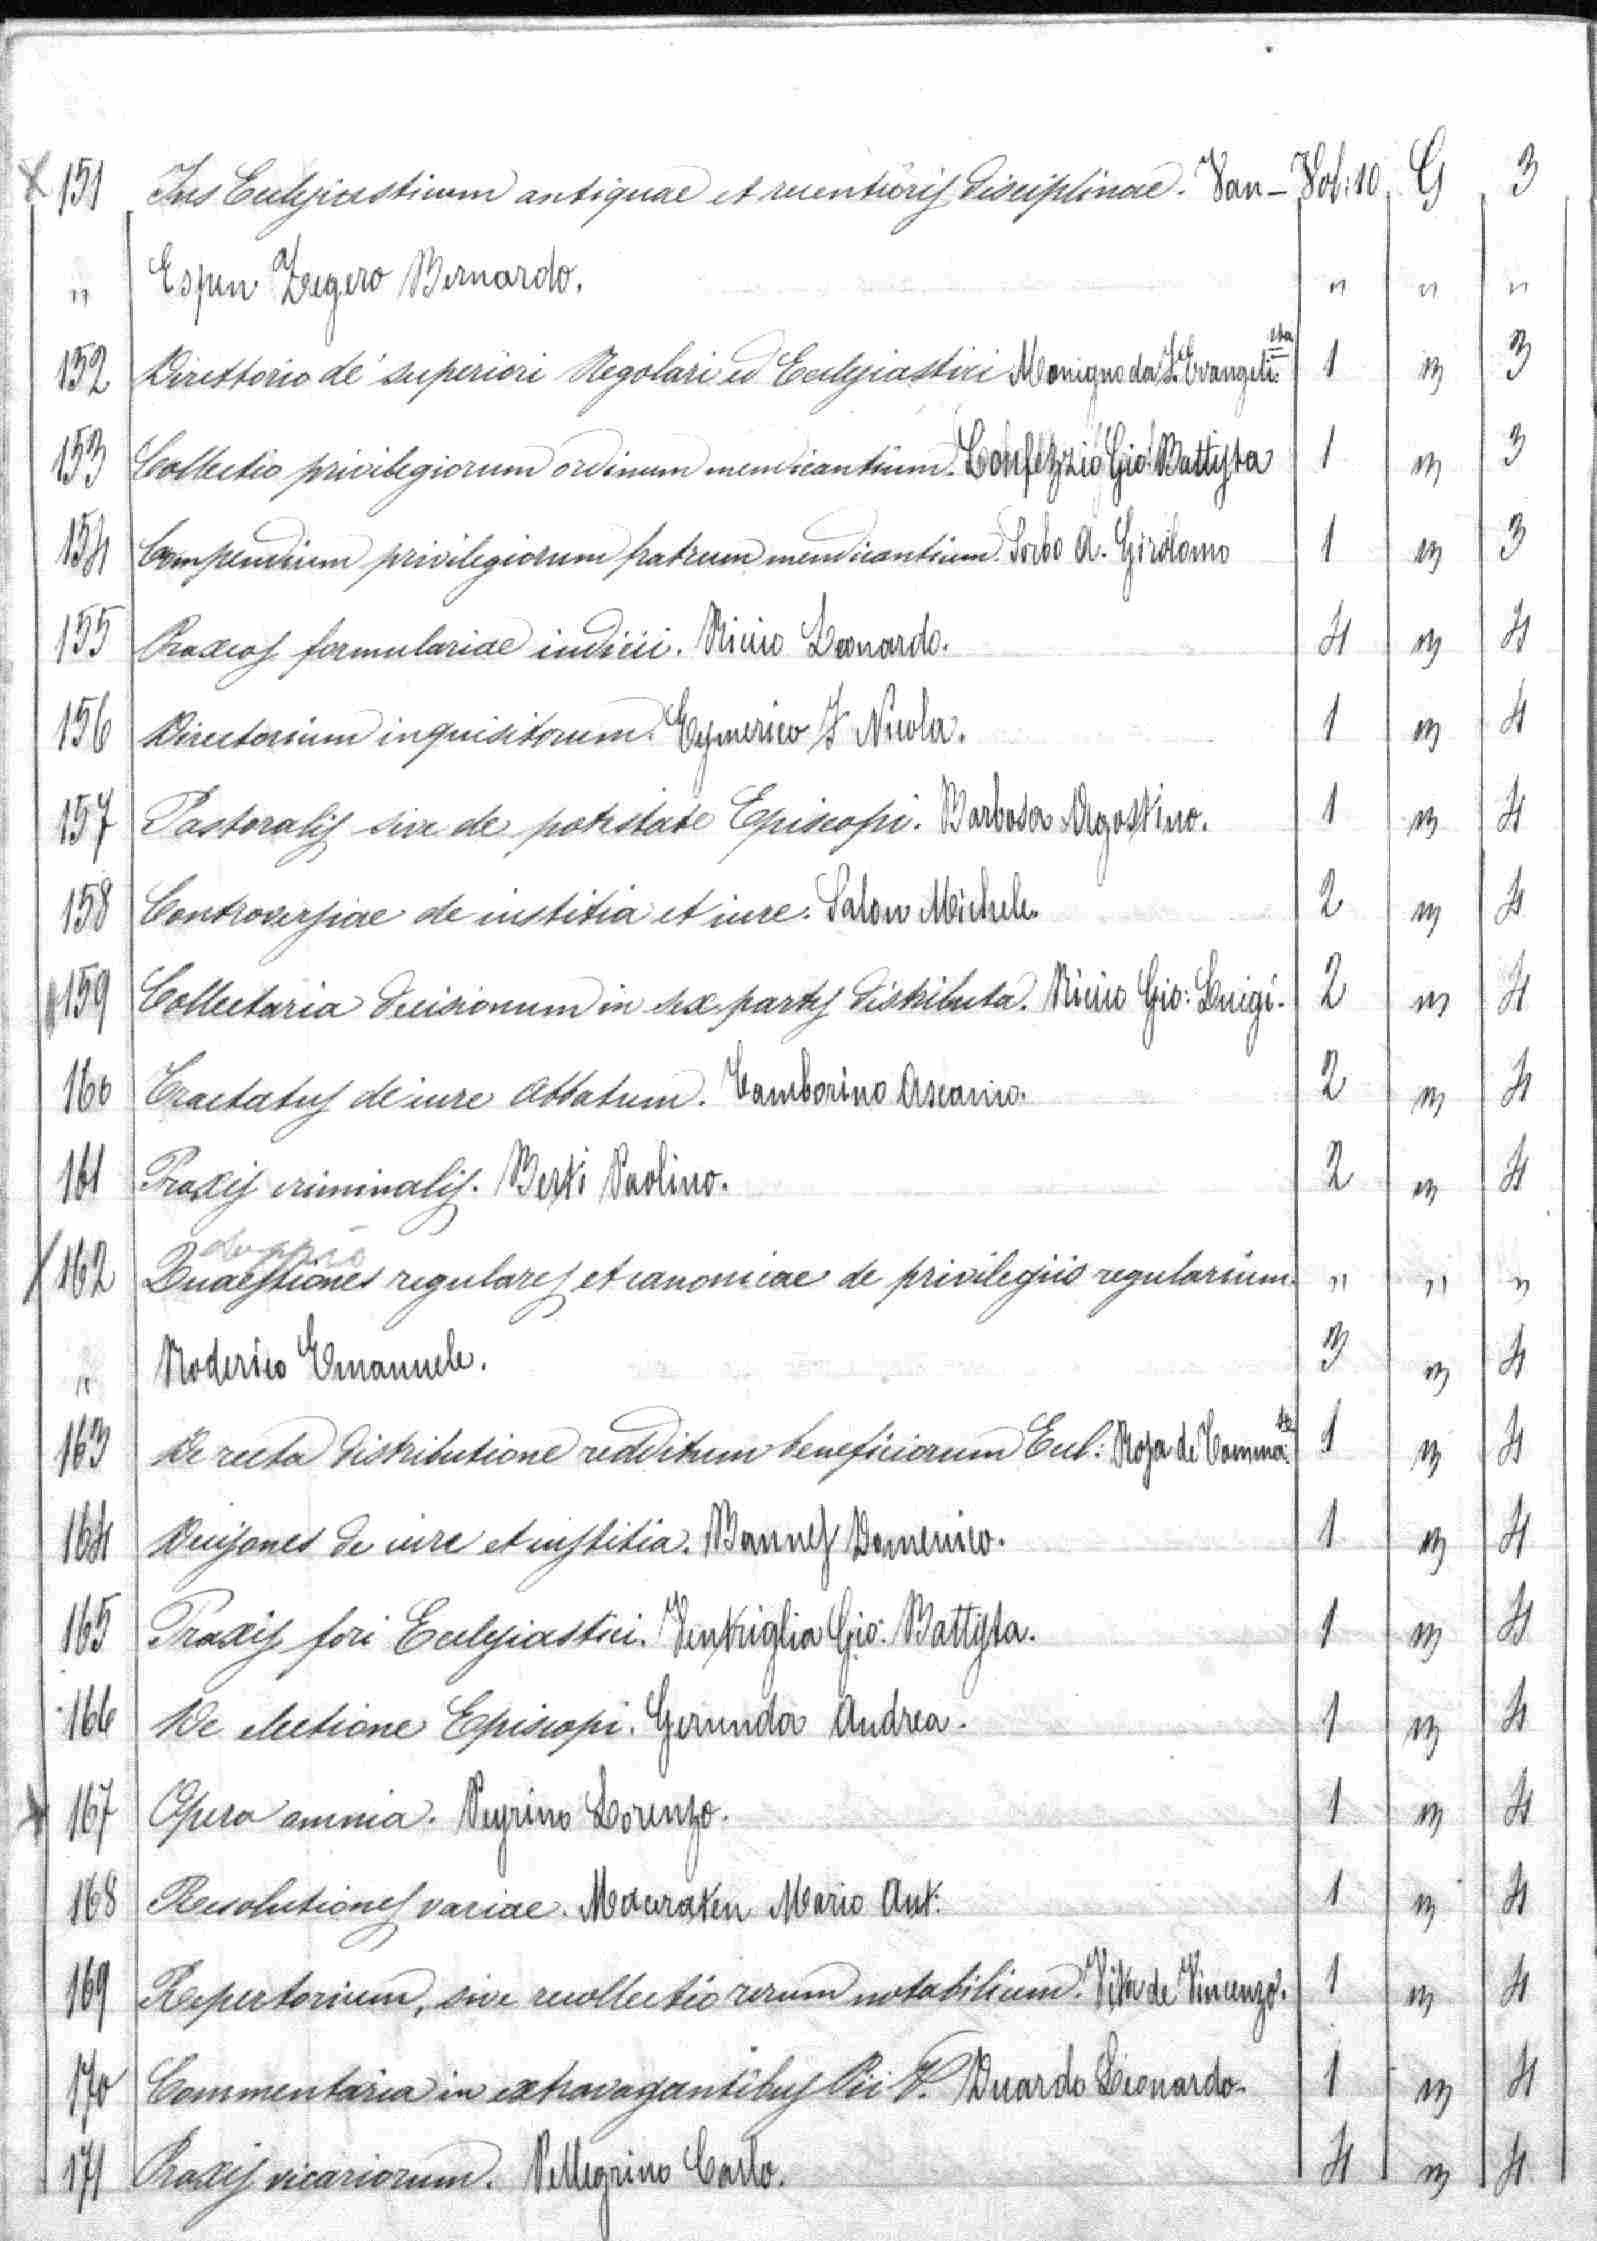 151 Ius Ecclesiasticum antiquae et recentioris disciplinae. Van- Vol: 10 G 3
" Espen Zegero Bernardo. " " "
152 Direttorio de' superiori Regolari ed Ecclesiastici Monigno da S. Evangelista 1 " 3
153 Collectio privilegiorum ordinum mendicantium. Confezzio Gio: Battista 1 " 3
154 Compendium privilegiorum fratrum mendicantium. Sorbo A. Girolamo 1 " 3
155 Praxeos formulariae iudicii. Riccio Leonardo. 4 " 4
156 Directorium inquisitorum. Eymerico F Nicola. 1 " 4
157 Pastoralis sive de potestate Episcopi. Barbosa Agostino. 1 " 4
158 Controversiae de iustitia et iure. Salon Michele. 2 " 4
159 Collectaria decisionum in sex partes distributa. Riccio Gio: Luigi. 2 " 4
160 Tractatus de iure Abbatum. Tamborino Ascanio. 2 " 4
161 Praxis criminalis. Berti Paolino. 2 " 4
doppio
162 Quaestiones regulares et canonicae de privilegiis regularium. " " "
" Roderico Emanuele. 3 " 4
163 De recta distributione reddituum beneficiorum Eccl: Roja de Tomma 1 " 4
164 Decisones de iure et iustitia. Bannes Domenico. 1 " 4
165 Praxis fori Ecclesiastici. Ventriglia Gio: Battista. 1 " 4
166 De electione Episcopi. Gerunda Andrea. 1 " 4
167 Opera omnia. Peyrino Lorenzo. 1 " 4
168 Resolutiones variae. Mario Ant: 1 " 4
169 Repertorium, sive recollectio rerum notabilium. Vita de Vincenzo. 1 " 4
170 Commentaria in extravagantibus Pii V. Duardo Leonardo. 1 " 4
171 Praxis vicariorum. Pellegrino Carlo. 4 " 4